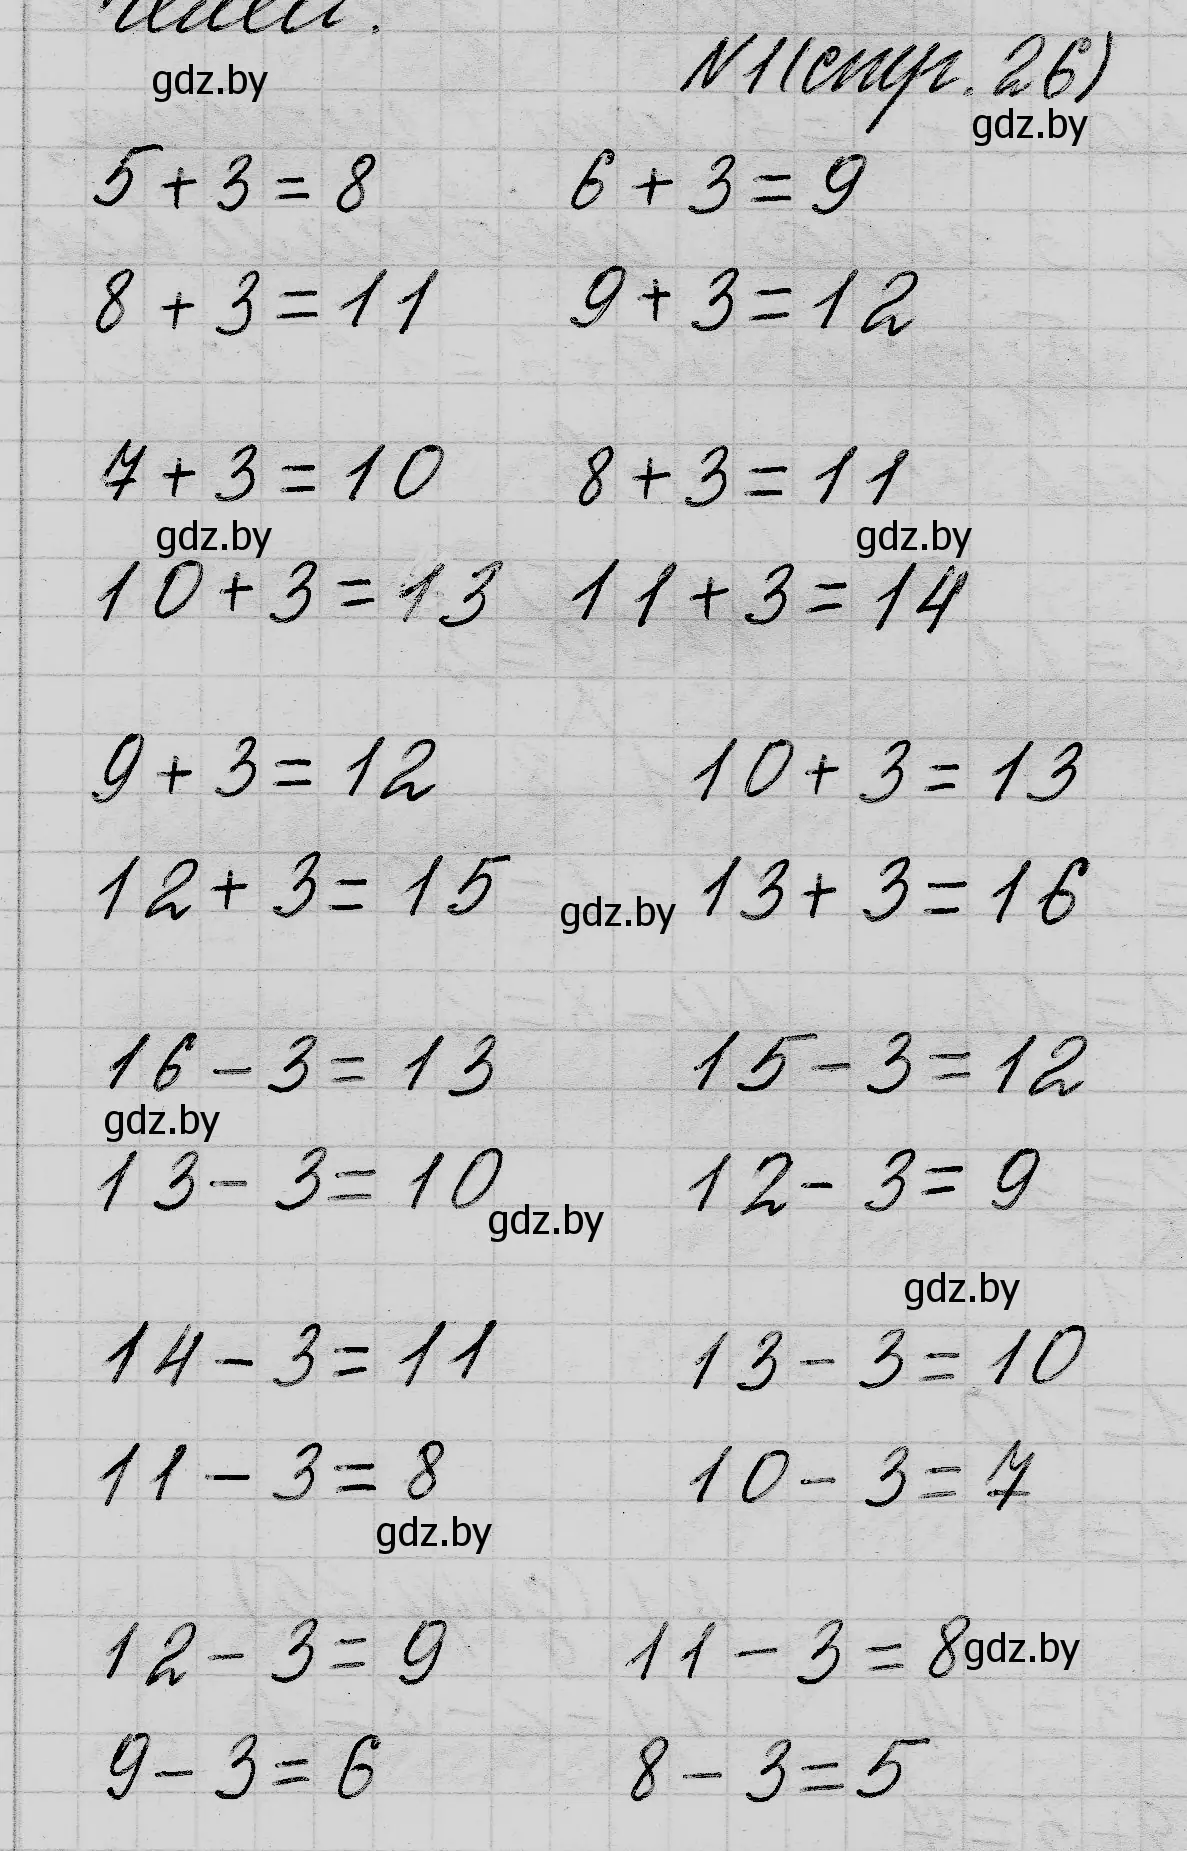 №1(стр. 26)
gdz.by
gdz.by
5 + 3 = 8 6 + 3 = 9
8 + 3 = 11 9 + 3 = 12
7 + 3 = 10 8 + 3 = 11
gdz.by gdz.by
10 + 3 = 13 11 + 3 = 14
9 + 3 = 12 10 + 3 = 13
12 + 3 = 15 gdz.by 13 + 3 = 16
16 - 3 = 13 15 - 3 = 12
gdz.by
13 - 3 = 10 12 - 3 = 9
gdz.by
gdz.by
14 - 3 = 11 13 - 3 = 10
11 - 3 = 8 10 - 3 = 7
gdz.by
12 - 3 = 9 11 - 3 = 8 gdz.by
9 - 3 = 6 8 - 3 = 5